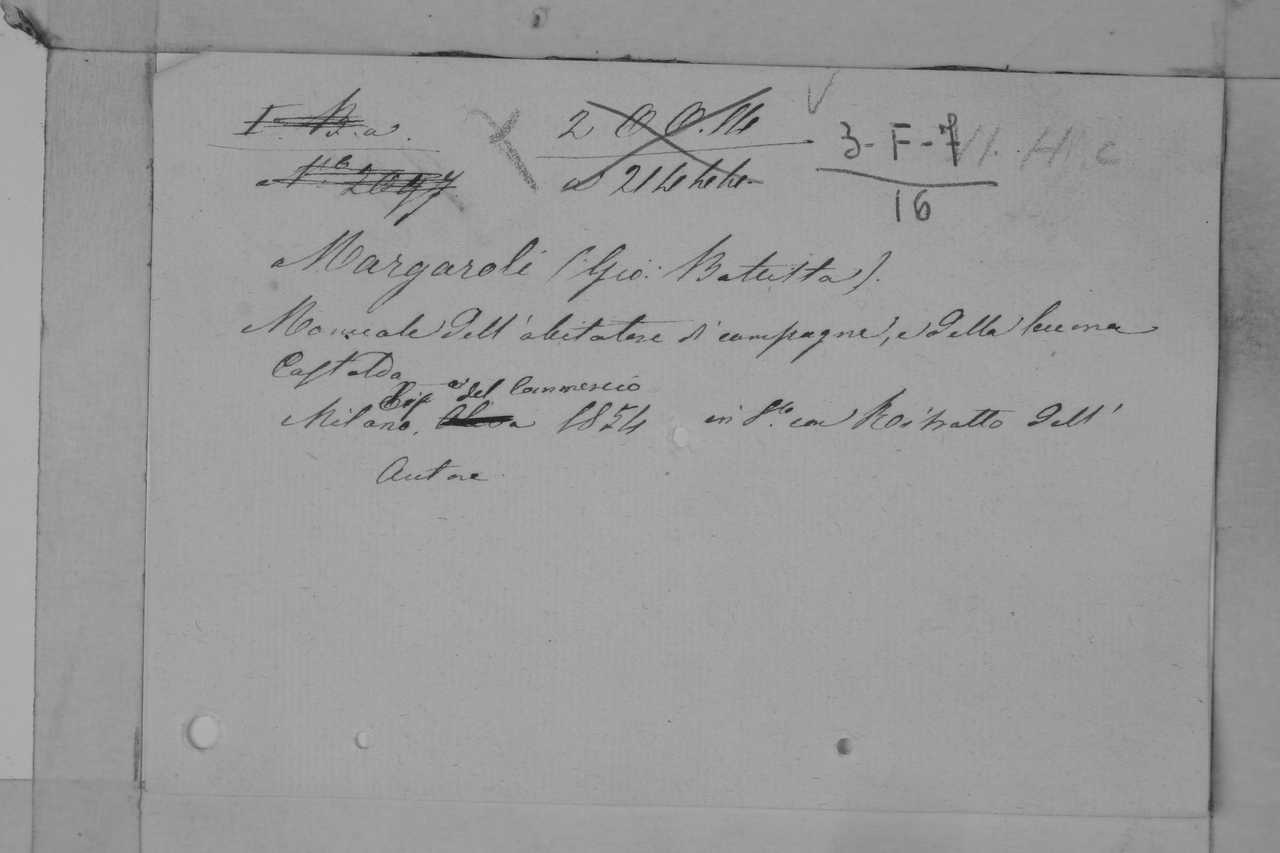 I B.a. 2 O O.14 V 3-F-7 VI. H. c
N.° 2097 16
Margaroli (Gio: Battista).
Manuale dell'abitatore di campagna, e della buona
Castalda
Tip.a del Commercio
Milano, 1834 in 8.° con Ritratto dell'
Autore.